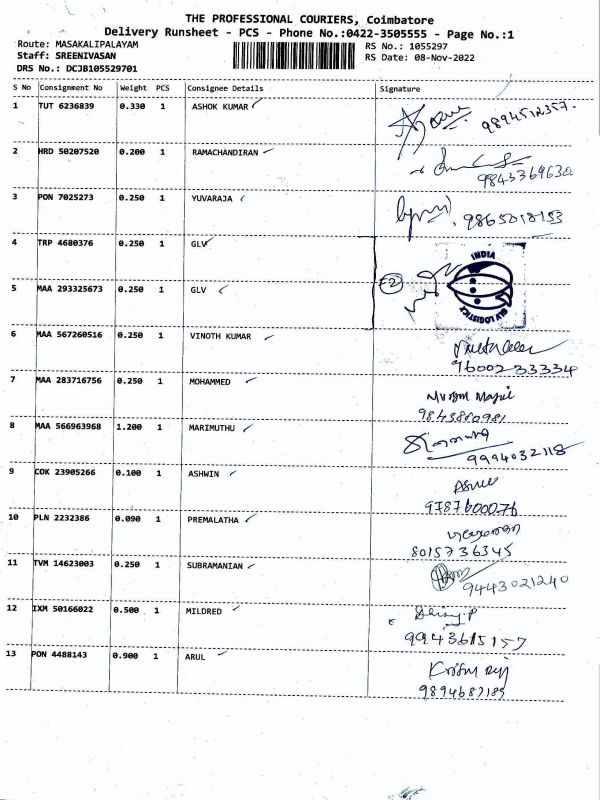 THE PROFESSIONAL COURIERS, Coimbatore
Delivery Runsheet - PCS - Phone No.:0422-3505555 - Page No.:1
Route: MASAKALIPALAYAM
RS No.: 1055297
Staff: SREENIVASAN
RS Date: 08-Nov-2022
DRS No.: DCJB105529701
S No Consignment No Weight PCS Consignee Details Signature
1 TUT 6236839 0.330 1 ASHOK KUMAR
2 HRD 50207520 0.200 1 RAMACHANDIRAN
9843369630
3 PON 7025273 0.250 1 YUVARAJA
9865018153
4 TRP 4680376 0.250 1 GLV
INDIA
5 MAA 293325673 0.250 1 GLV
GLV LOGISTICS
6 MAA 567260516 0.250 1 VINOTH KUMAR
9600233334
7 MAA 283716756 0.250 1 MOHAMMED
9843860981
8 MAA 566963968 1.200 1 MARIMUTHU
9994032118
9 COK 23905266 0.100 1 ASHWIN
9787600076
10 PLN 2232386 0.090 1 PREMALATHA
8015736345
11 TVM 14623003 0.250 1 SUBRAMANIAN
9443021240
12 IXM 50166022 0.500 1 MILDRED
9943615157
13 PON 4488143 0.900 1 ARUL
9894687189